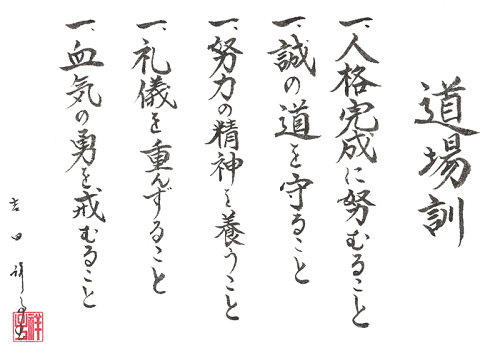 道場訓
一、人格完成に努むること
一、誠の道を守ること
一、努力の精神を養うこと
一、礼儀を重んずること
一、血気の勇を戒むること
吉田